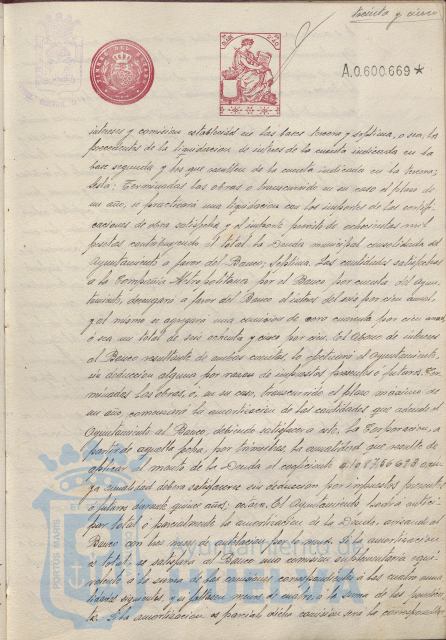 treinta y cinco
A.0.600.669*
intereses y comision establecida en las bases tercera y septima, o sea, la
procedentes de la liquidacion de interes de la cuenta indicada en la
base segunda y los que resulten de la cuenta indicada en la tercera;
Sexta: Terminadas las obras o transcurrido en su caso el plazo de
un año, se practicará una liquidacion con los importes de las certifi-
caciones de obra satisfecha y el importe previsto de ochocientas mil
pesetas constituyendo el total la Deuda municipal consolidada del
Ayuntamiento a favor del Banco; Septima: Las cantidades satisfechas
a la Compañia Metropolitana por el Banco por cuenta del Ayun-
tamiento, devengará a favor del Banco el interes del seis por cien anual
y al mismo se agregará una comision de cero cuarenta por cien anual
ó sea un total de seis cuarenta por cien. El abono de intereses
al Banco resultante de ambas cuentas, lo efectuará el Ayuntamiento,
sin deduccion alguna por razon de impuestos presentes o futuros. Ter-
minadas las obras, ó, en su caso, transcurrido el plazo máximo de
un año, comenzará la amortizacion de las cantidades que adeude el
Ayuntamiento al Banco, debiendo satisfacer a este, la Corporacion, a
partir de aquella fecha, por trimestres, la anualidad que resulte de
aplicar al monto de la Deuda el coeficiente
ya anualidad deberá satisfacerse sin deduccion por impuestos presentes
o futuros durante quince años; octava: El Ayuntamiento podrá antici-
par total ó parcialmente la amortizacion de la Deuda, avisando al
Banco con tres meses de antelacion por lo menos. Si la amortizacion
es total, se satisfará al Banco una comision suplementaria equi-
valente a la suma de las comisiones correspondientes a las cuatro anua-
lidades siguientes, o si faltasen menos de cuatro, á la suma de las
Si la amortizacion es parcial dicha comision será la correspondien-
Ayuntamiento de
PORTUS MAGNUS